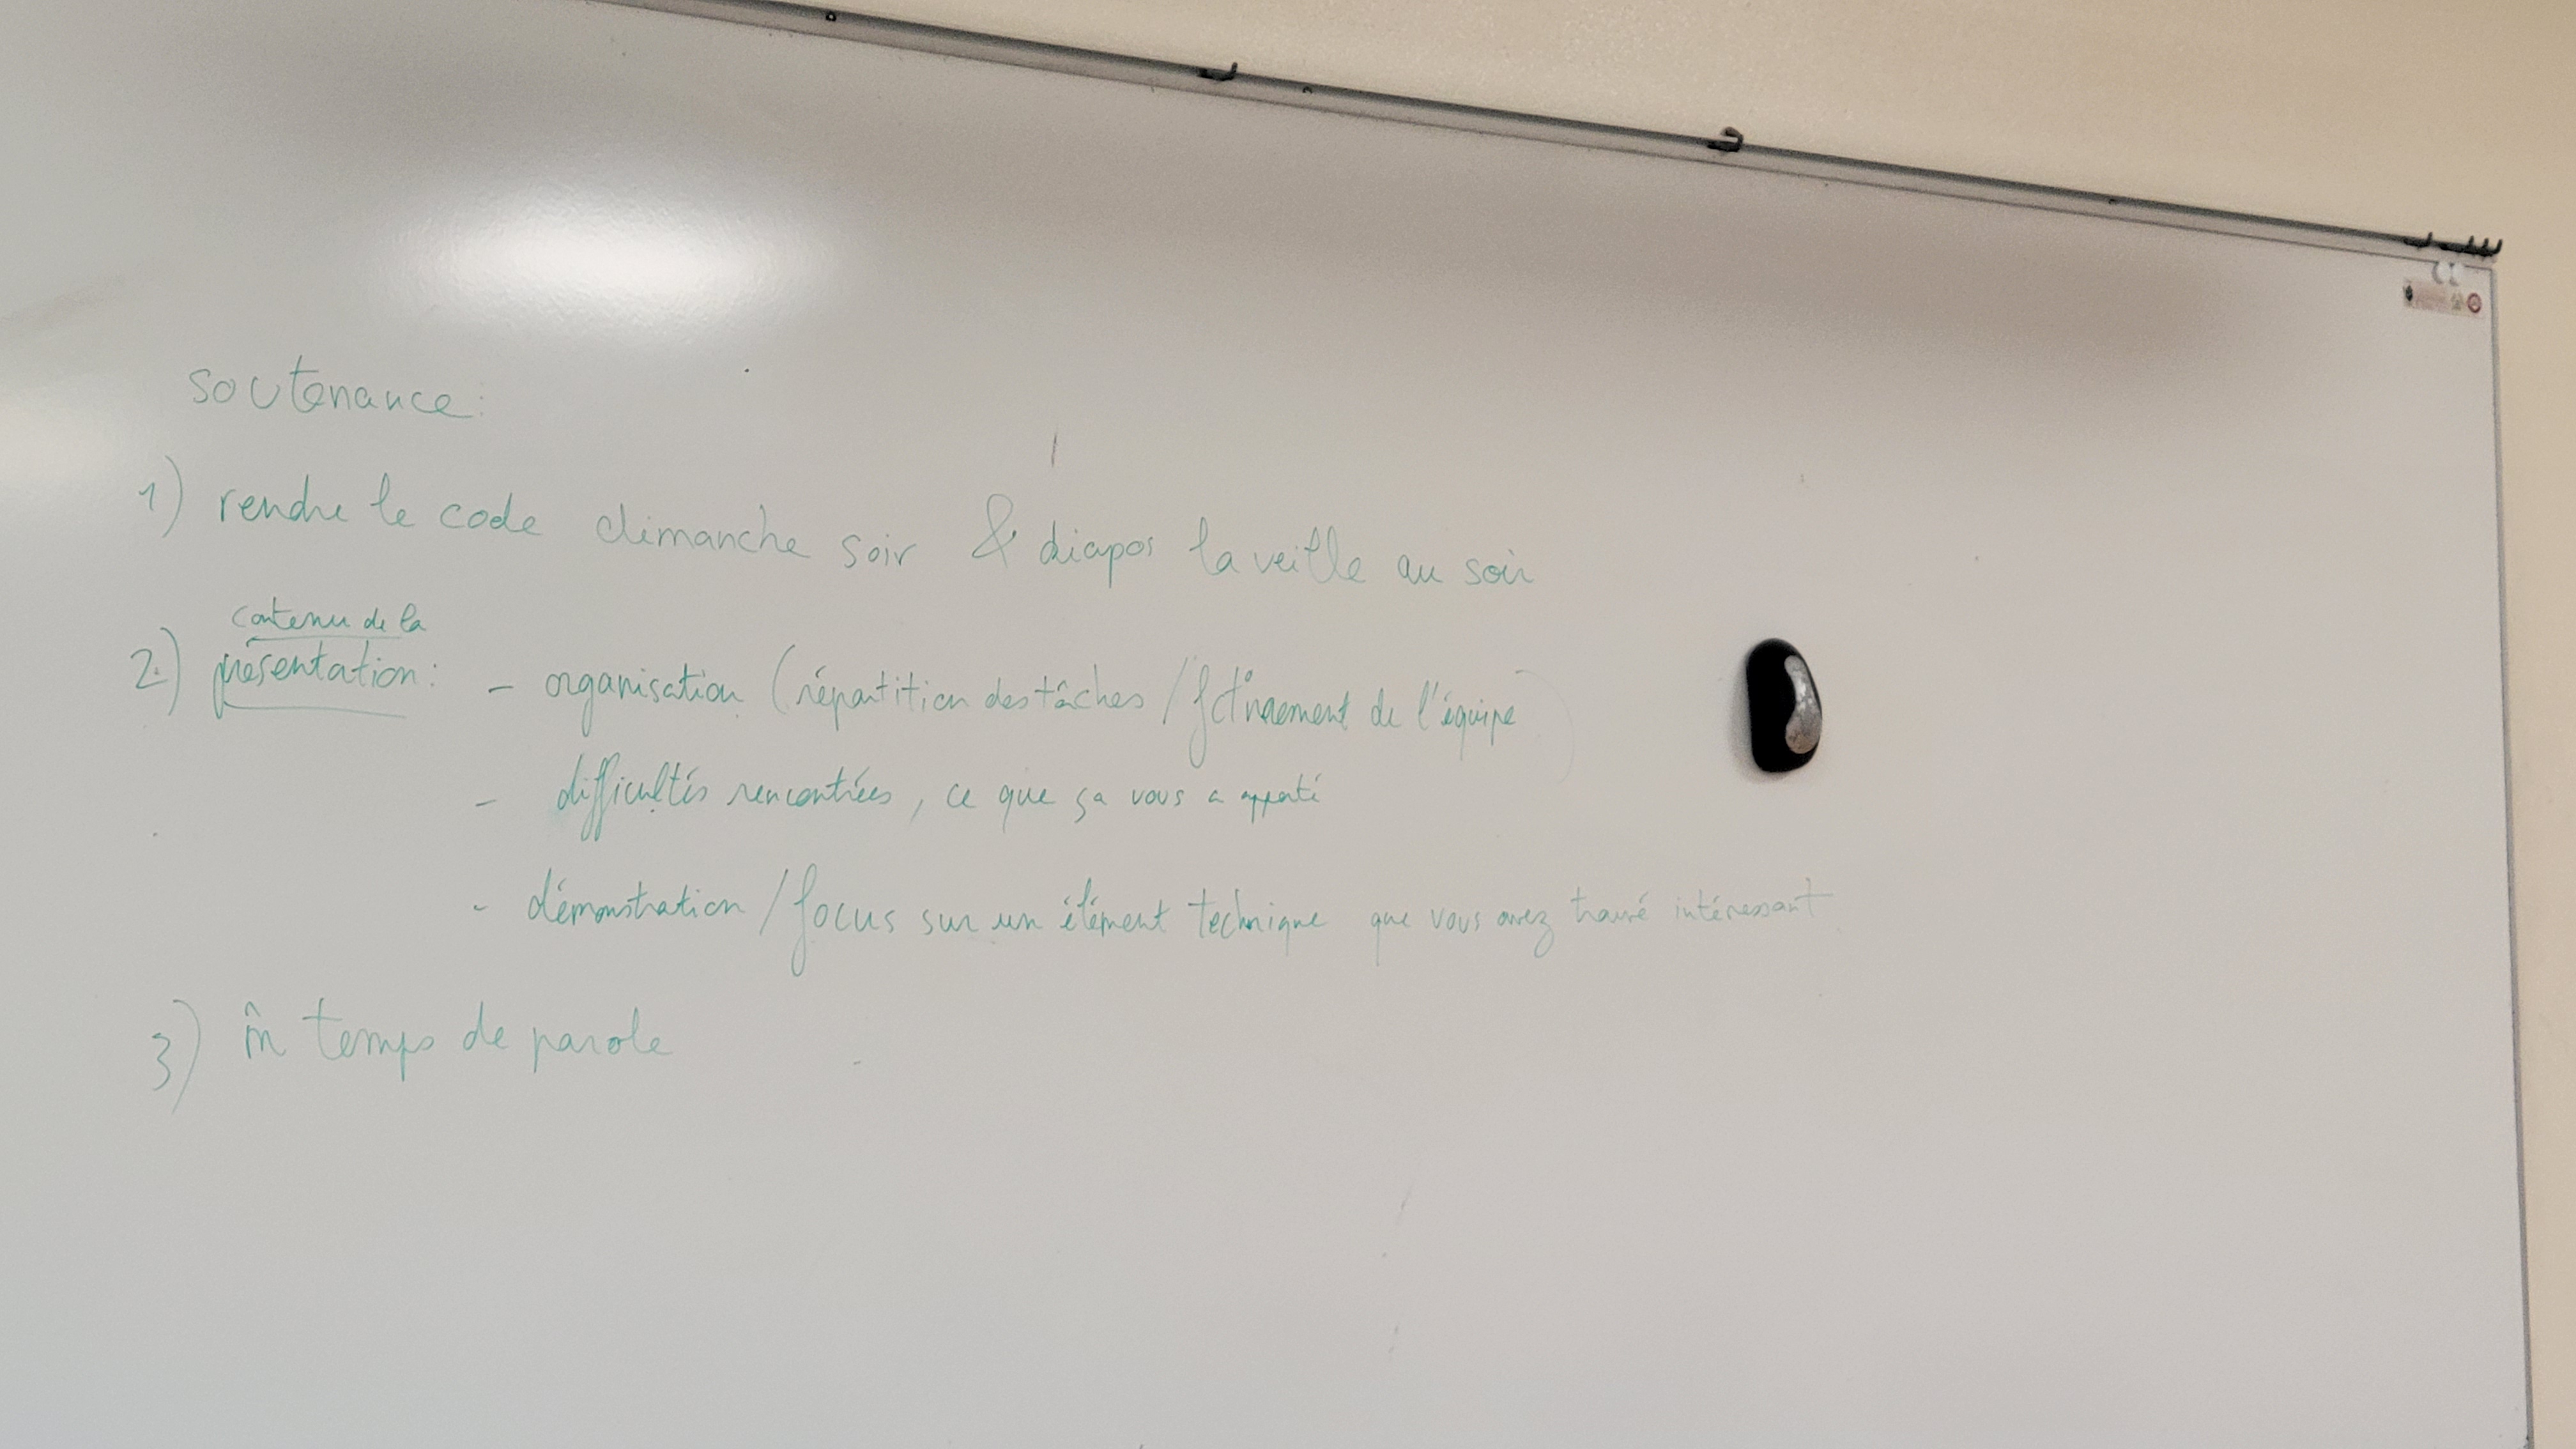 soutenance:
1) rendre le code dimanche soir & diapos la veille au soir
contenu de la
2) présentation: - organisation (répartition des tâches / fct°nnement de l'équipe)
- difficultés rencontrées, ce que ça vous a apporté
- démonstration / focus sur un élément technique que vous avez trouvé intéressant
3) m̂ temps de parole